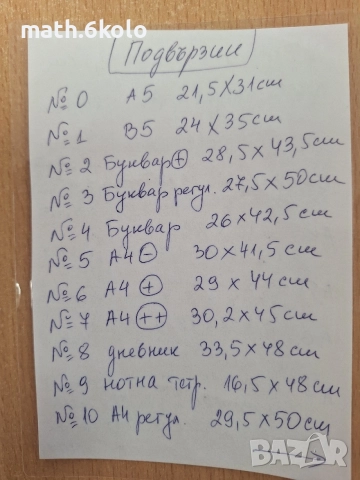 math.6kolo
Подвързии
№ 0 A5 21,5X31cm
№ 1 B5 24X35cm
№ 2 Буквар + 28,5x43,5cm
№ 3 Буквар регул. 27,5x50cm
№ 4 Буквар 26x42,5cm
№ 5 A4 - 30x41,5cm
№ 6 A4 + 29x44cm
№ 7 A4 ++ 30,2x45cm
№ 8 дневник 33,5x48cm
№ 9 нотна тетр. 16,5x48cm
№ 10 A4 регул. 29,5x50cm
BAZAR